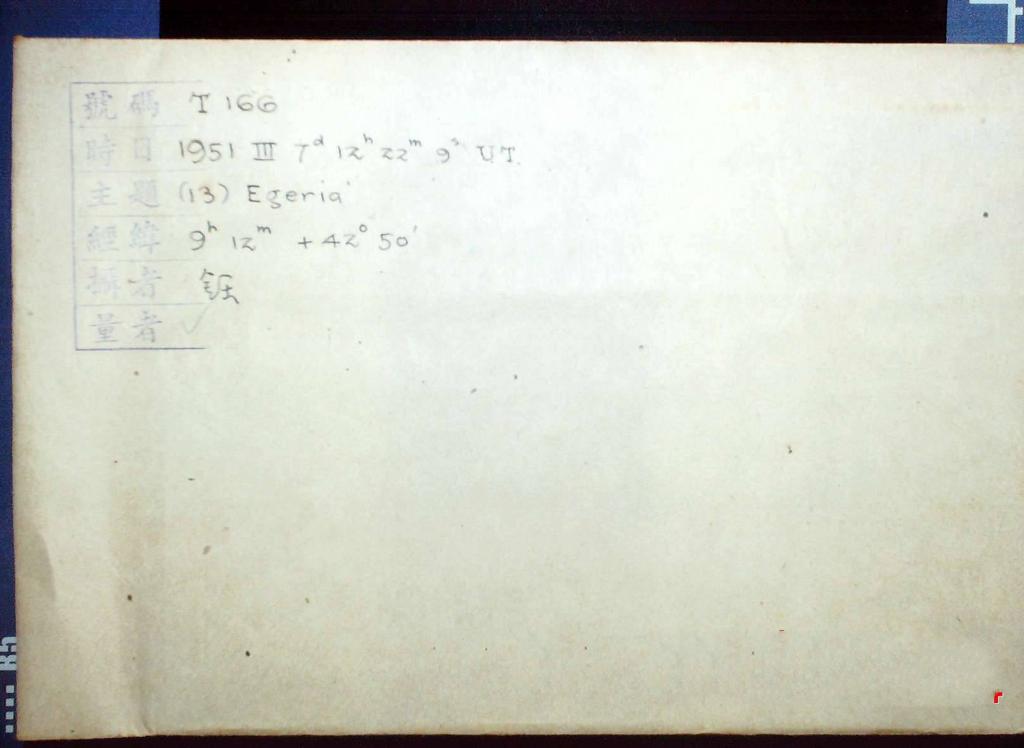 號碼 T 166
時日 1951 III 7d 12h 22m 9s U.T.
主題 (13) Egeria
經緯 9h 12m +42° 50'
攝者 鈺
量者